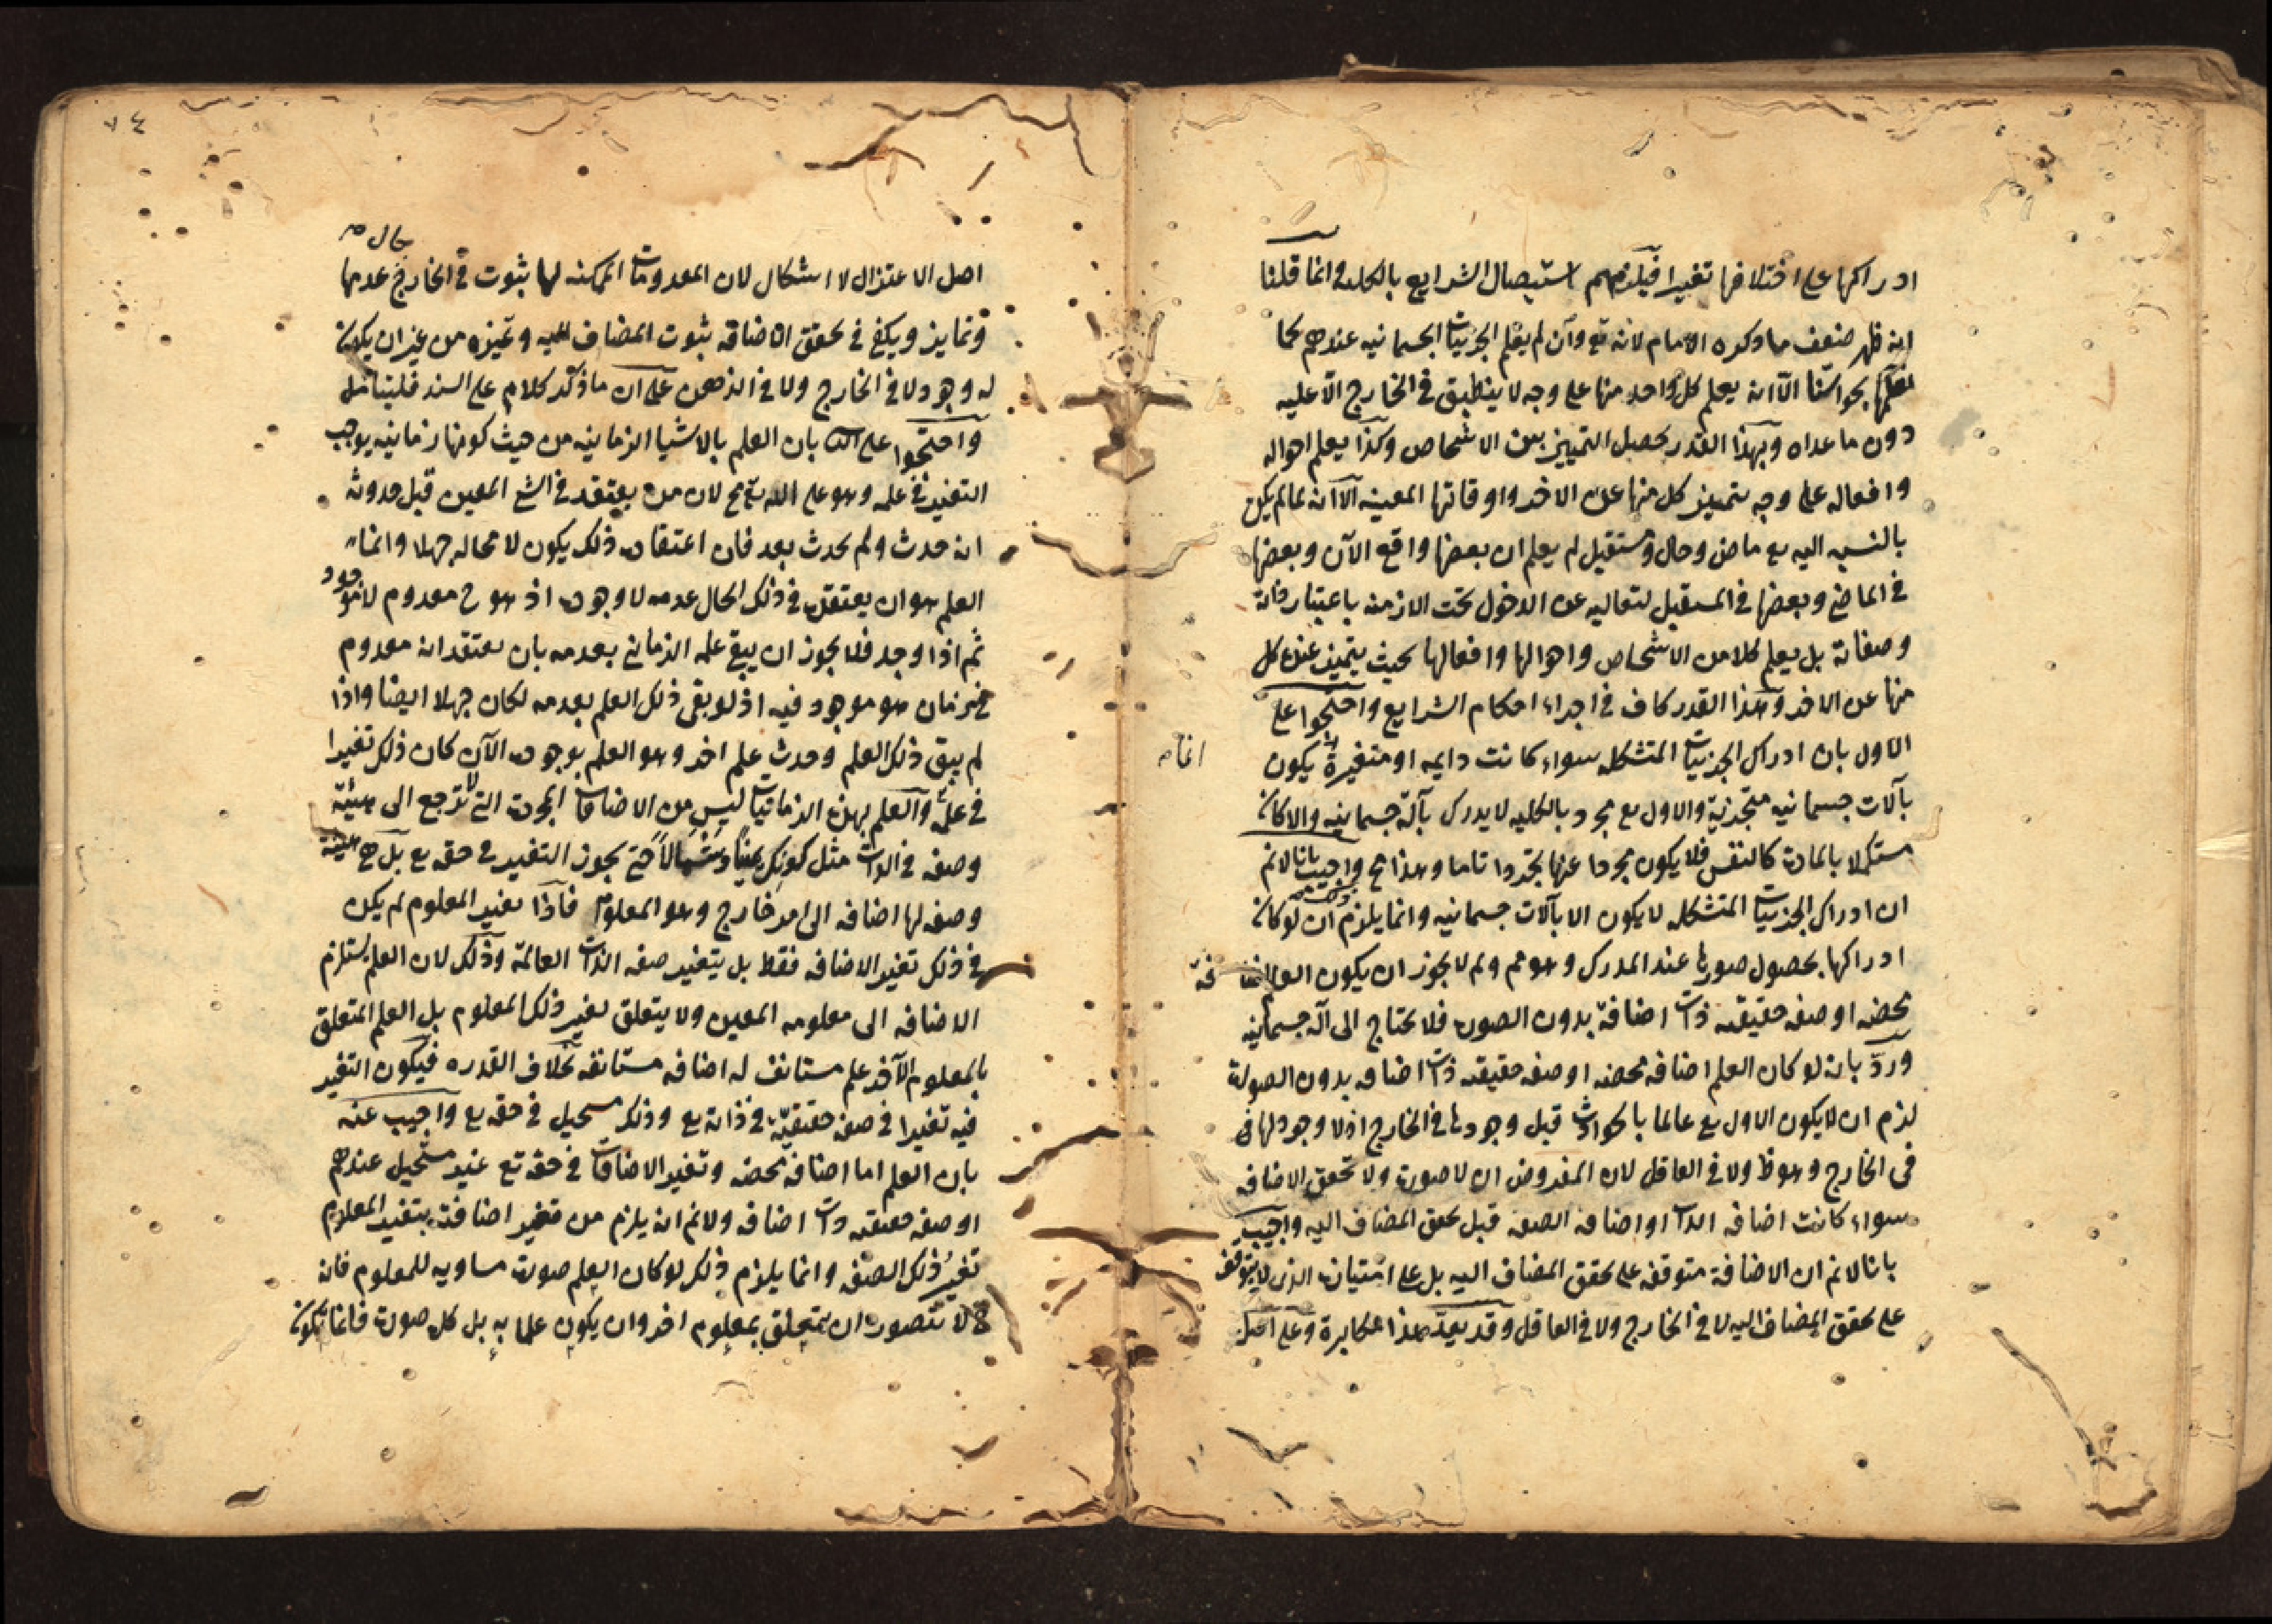 ادراكها على اختلافها تغيرا فيلزمهم استيصال الشرايع بالكلية وانما قلنا
انه ظهر ضعف ما ذكره الامام لانه تع وان لم يعلم الجزئيات الجسمانيه عندهم كما
نعلمها بحواسنا الا انه يعلم كل واحد منها على وجه لا ينطبق في الخارج الا عليه
دون ما عداه وبهذا القدر يحصل التمييز بين الاشخاص وكذا يعلم احواله
وافعاله على وجه يتميز كل منها عن الاخر واوقاتها المعينه الا انه لما لم يكن
بالنسبه اليه تع ماض وحال ومستقبل لم يعلم ان بعضها واقع الآن وبعضها
في الماضي وبعضها في المستقبل لتعاليه عن الدخول تحت الازمنه باعتبار ذاته
وصفاته بل يعلم كلا من الاشخاص واحوالها وافعالها بحيث يتميز عنده كل
منها عن الاخر وهذا القدر كاف في اجراء احكام الشرايع واحتجوا على
الاول بان ادراك الجزئيات المتشكله سواء كانت دايمه او متغيرة يكون
انما
بآلات جسمانيه متجزئة والاول تع مجرد بالكليه لا يدرك بآلة جسمانيه والا كان
مستكملا بالمادة كالنفس فلا يكون مجردا عنها تجردا تاما وهذا مح واجيب بانا لانم
ان ادراك الجزئيات المتشكله لا يكون الا بآلات جسمانيه وانما يلزم ان لو كان
ادراكها بحصول صورتها عند المدرك وهو مم ولم لا يجوز ان يكون العلم
محضه او صفه حقيقيه ذات اضافة بدون الصورة فلا يحتاج الى آلة جسمانيه
ورد بانه لو كان العلم اضافه محضه او صفه حقيقيه ذات اضافه بدون الصورة
لزم ان لا يكون الاول تع عالما بالحوادث قبل وجودها في الخارج اذ لا وجود لها
في الخارج وهو ظ ولا في العاقل لان المفروض ان لا صورة ولا تحقق الاضافه
سواء كانت اضافه الذات او اضافه الصفه قبل تحقق المضاف اليه واجيب
بانا لانم ان الاضافة متوقفه على تحقق المضاف اليه بل على امتيازه الذي لا يتوقف
على تحقق المضاف اليه لا في الخارج ولا في العاقل وقد يعد هذا مكابرة وعلى اصل
٧٤
حال
اصل الاعتزال لا اشكال لان المعدومات الممكنه لها ثبوت في الخارج عدمها
وتمايز ويكفي في تحقق الاضافه ثبوت المضاف اليه وتميزه من غير ان يكون
له وجود لا في الخارج ولا في الذهن على ان ما ذكر كلام على السند فليتامل
واحتجوا على بان العلم بالاشيا الزمانيه من حيث كونها زمانيه يوجب
التغير في علمه وهو على الله تع مح لان من يعتقد في الشئ المعين قبل حدوثه
انه حدث ولم يحدث بعد فان اعتقاده ذلك يكون لا محاله جهلا وانما
العلم هو ان يعتقد في ذلك الحال عدمه لا وجوده اذ هو ح معدوم لا موجود
ثم اذا وجد فلا يجوز ان يبقى علمه الزماني بعدمه بان يعتقد انه معدوم
في زمان هو موجود فيه اذ لو بقى ذلك العلم بعدمه لكان جهلا ايضا واذا
لم يبق ذلك العلم وحدث علم اخر وهو العلم بوجوده الآن كان ذلك تغيرا
في علمه والعلم بهذه الزمانيات ليس من الاضافات المجردة التي لا ترجع الى هيئة
وصفه في الذات مثل كونك يمينا وشمالا حتى يجوز التغير في حقه تع بل هي هيئة
وصفه لها اضافه الى امر خارج وهو المعلوم فاذا تغير المعلوم لم يكن
في ذلك تغير الاضافه فقط بل يتغير صفه الذات العالمة وذلك لان العلم يستلزم
الاضافه الى معلومه المعين ولا يتعلق بغير ذلك المعلوم بل العلم المتعلق
بالمعلوم الآخر علم مستانف له اضافه مستانفه بخلاف القدره فيكون التغير
فيه تغيرا في صفه حقيقيه في ذاته تع وذلك مستحيل في حقه تع واجيب عنه
بان العلم اما اضافة محضه وتغير الاضافات في حقه تع غير مستحيل عندهم
او صفه حقيقيه ذات اضافه ولانم انه يلزم من تغير اضافته بتغير المعلوم
تغير ذلك الصفه وانما يلزم ذلك لو كان العلم صورة مساويه للمعلوم فانه
لا يتصور ان يتعلق بمعلوم اخر وان يكون علما به بل كل صورة فانما تكون